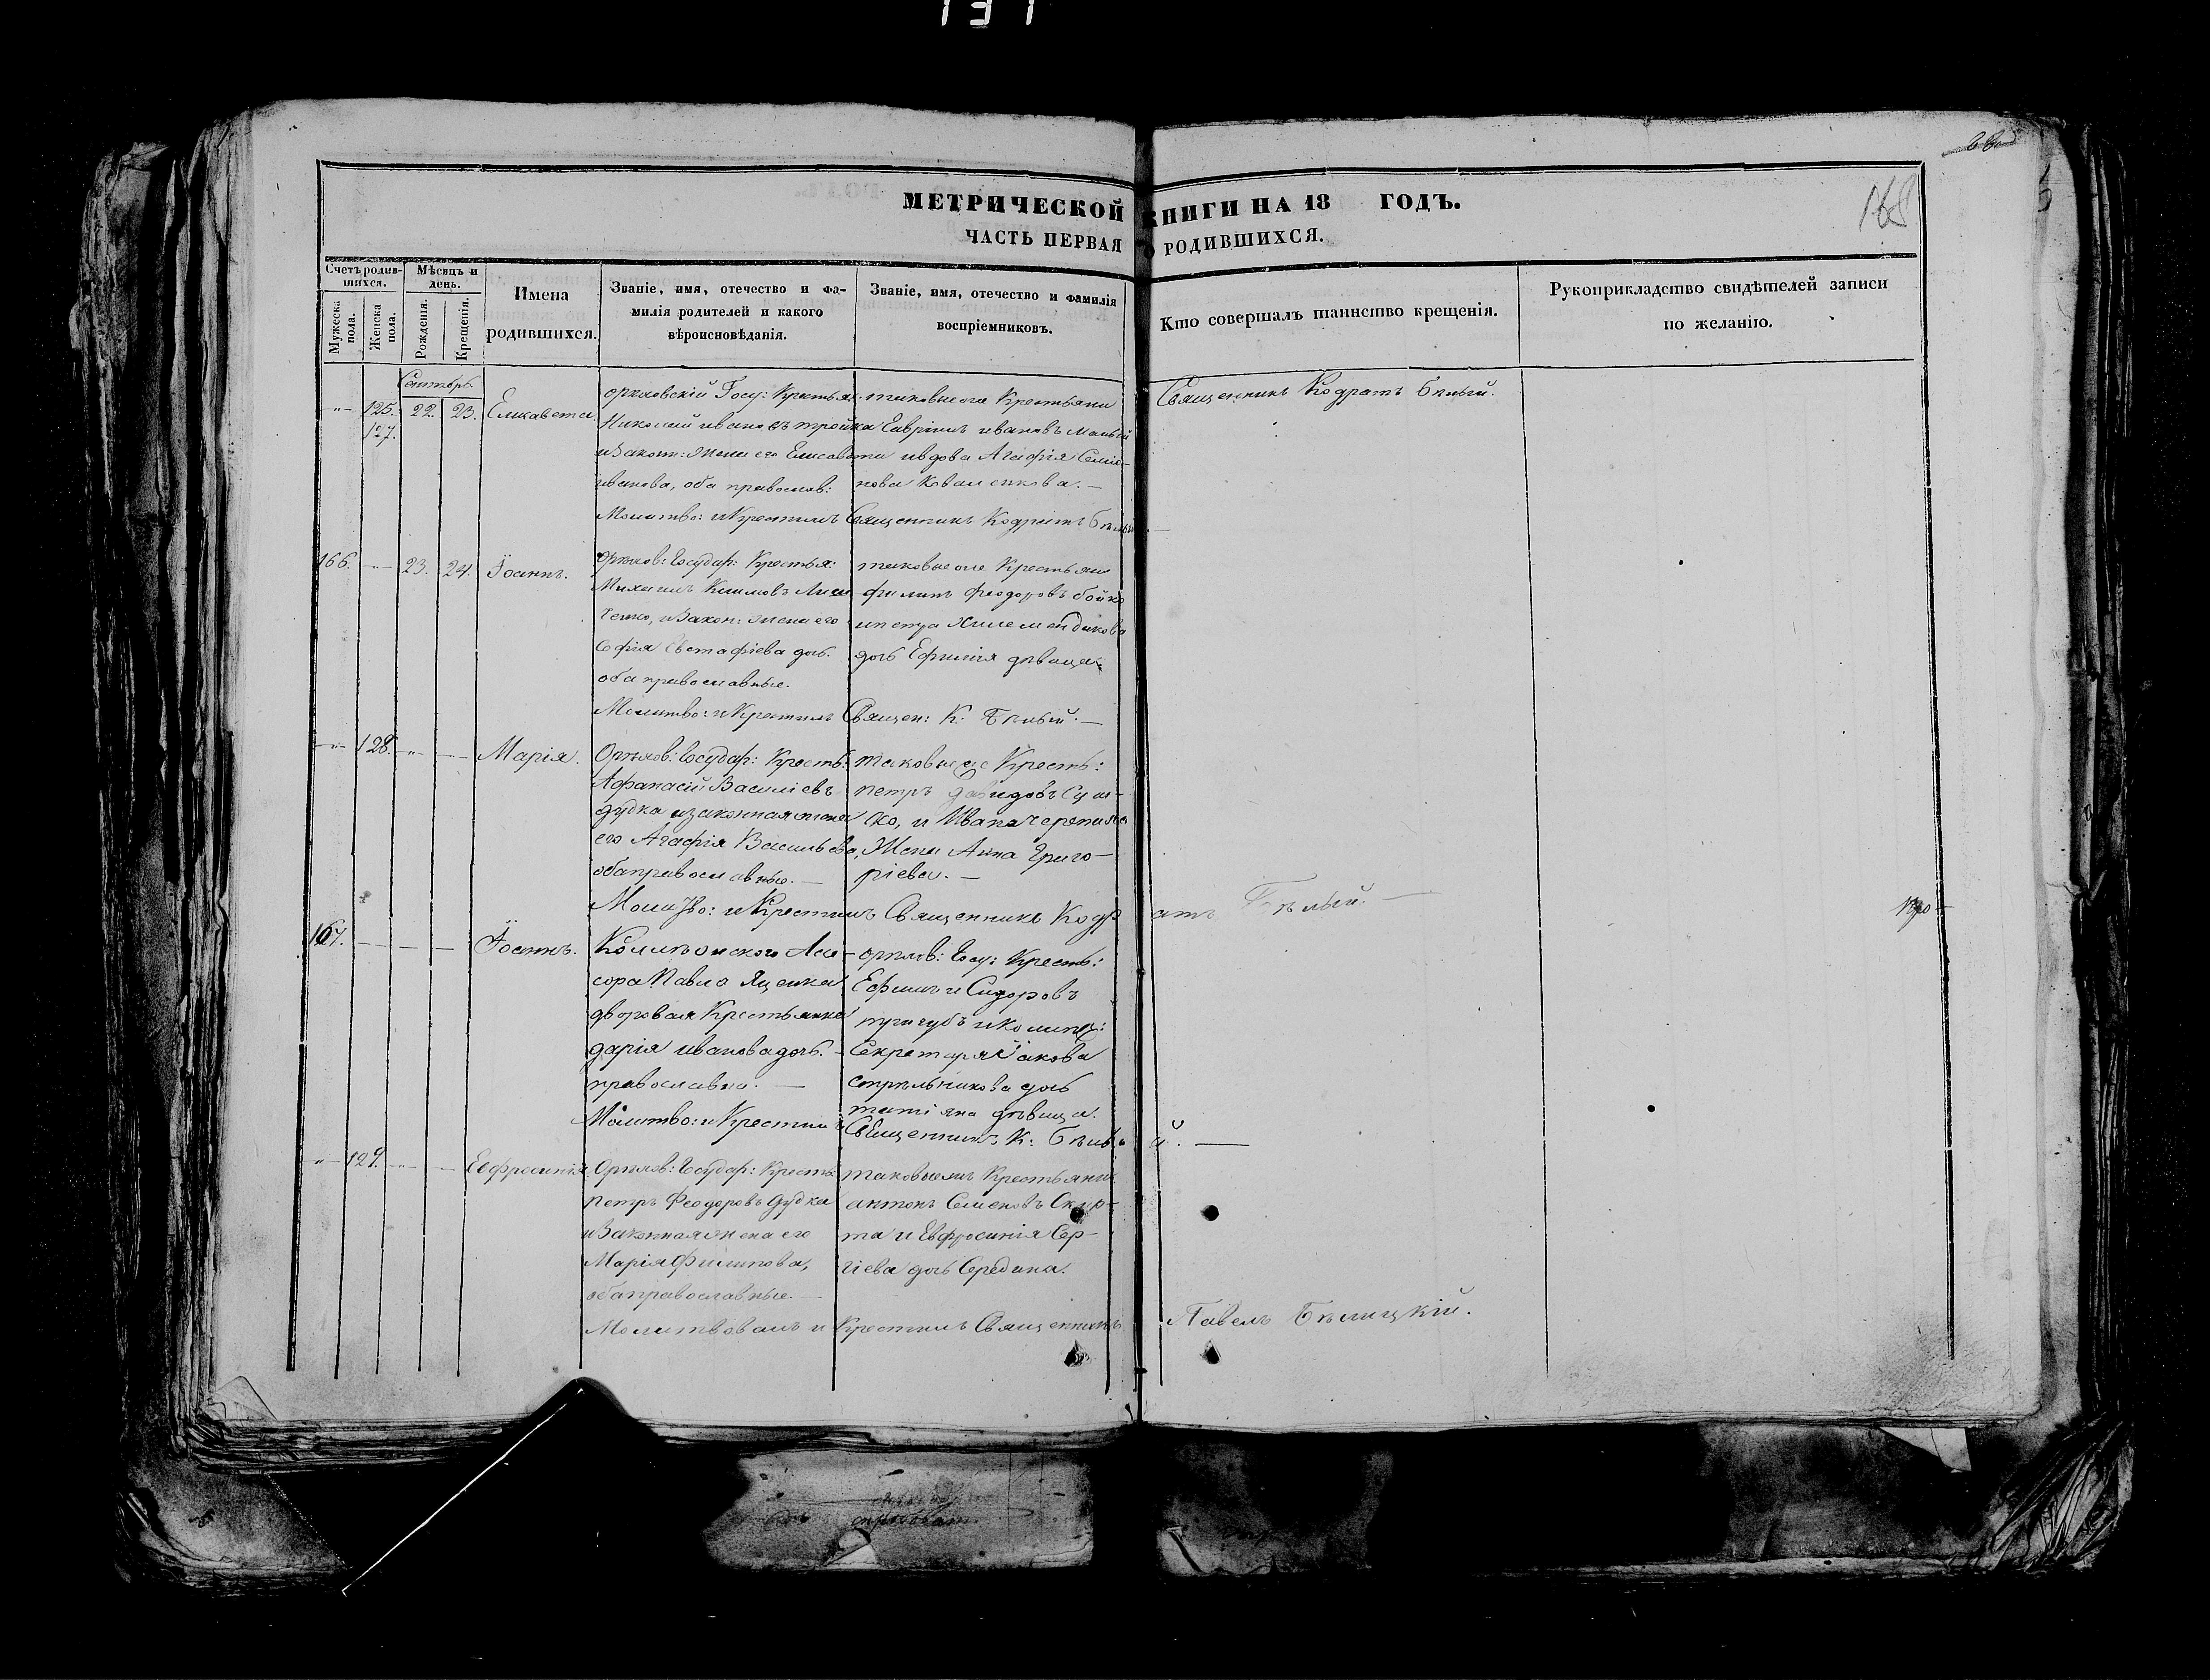 131
168
МЕТРИЧЕСКОЙ КНИГИ НА 18 ГОДЪ.
ЧАСТЬ ПЕРВАЯ О РОДИВШИХСЯ.
Счетъ родив-
шихся.
Мужеска
пола.
Женска
пола.
Мѣсяцъ и
день.
Рожденія.
Крещенія.
Имена
родившихся.
Званіе, имя, отечество и фа-
милія родителей и какого
вѣроисповѣданія.
Званіе, имя, отечество и фамилія
воспріемниковъ.
Кто совершалъ таинство крещенія.
Рукоприкладство свидѣтелей записи
по желанію.
Сентябрь
125. 22. 23. Елисавета
127.
Госу: Крестьян:
Николай Ивановъ тройка
и Закон: Жена его Елисавета
иванова, оба православ:
таковые же Крестьяни
Гавріилъ ивановъ малый
и вдова Агафія Семіо-
нова Коваленкова. —
Молитво: и Крестилъ Священникъ Кодратъ Бѣлый
Священникъ Кодратъ Бѣлый.
166. 23. 24. Іоаннъ.
Орѣхов: Государ: Крестья:
Михаилъ Климовъ
и Закон: жена его
Софія Евстафіева дочь.
оба православные.
таковые же Крестьяни
филипъ феодоровъ бойко
дочь дѣвица
Молитво: и Крестилъ Священ: К. Бѣлый. —
128. Марія.
Орѣхов: Государ: Кресть:
Афанасій Василіевъ
дудка и законная жена
его Агафія Васильева,
оба православные. —
таковые же Кресть:
петръ давидовъ
ко, и Ивана
Жена Анна Григо-
ріева. —
Молитво: и Крестилъ Священникъ Кодратъ Бѣлый. —
167. Іоаннъ.
Коллѣжскаго Ассе-
сора Павла Яценка
дворовая Крестьянка
дарія иванова дочь. —
православна. —
орѣхов: Госу: Кресть:
Ефимъ Сидоровъ
Секретаря Іакова
стрѣльникова дочь
татіяна дѣвица.
Молитво: и Крестилъ Священникъ К: Бѣлый. —
129. Евфросинія.
Орѣхов: Государ: Кресть:
петръ Феодоровъ дудка
и Законная жена его
Марія Филипова,
оба православные. —
таковые же Крестьяни
антонъ Семеновъ Скир-
та и Евфросинія Сер-
гіева дочь Середина.
Молитвовалъ и Крестилъ Священникъ Павелъ Бѣлицкій.